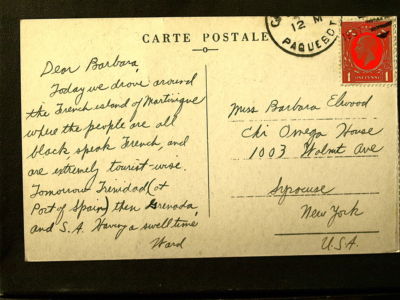 CARTE POSTALE
12 M
PAQUEBOT
1 1
Dear Barbara,
Today we drove around
the French island of Martinique
where the people are all
black speak French, and
are extremely tourist-wise.
Tomorrow Trinidad (at
Port of Spain) then Grenada,
and S.A. Having a swell time
Ward
Miss Barbara Elwood
Chi Omega House
1003 Walnut Ave
Syracuse
New York
U.S.A.